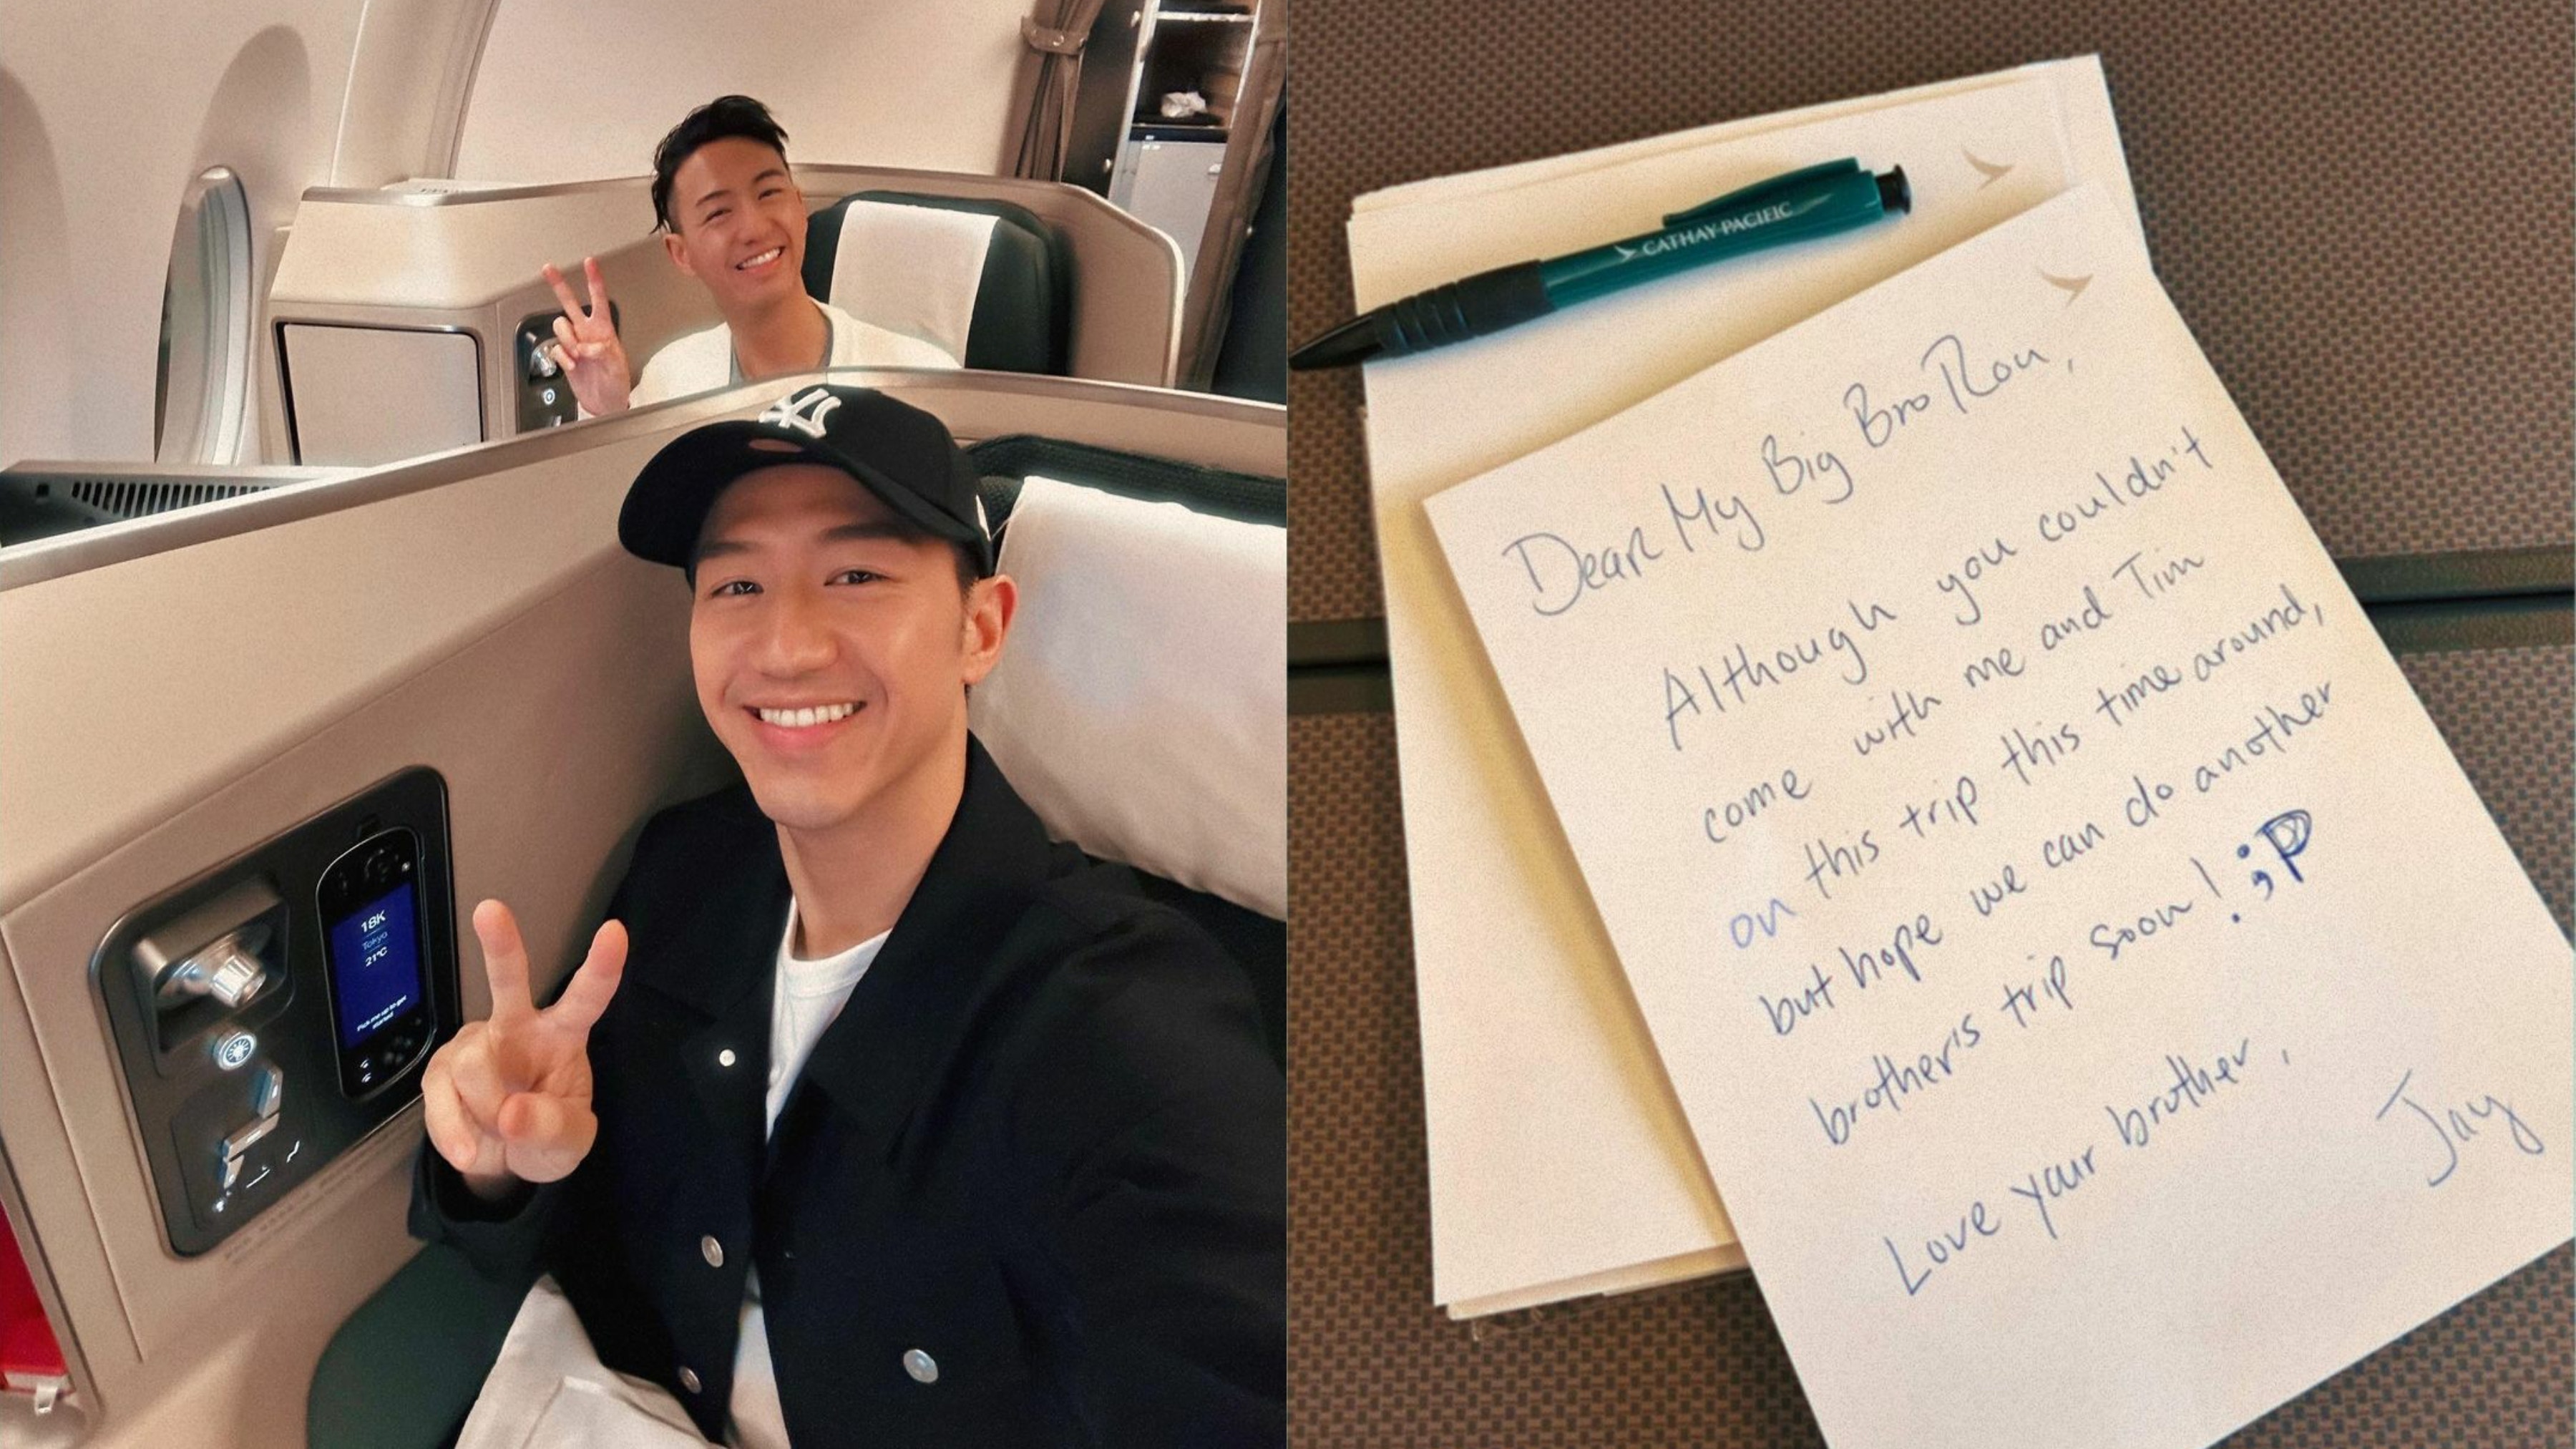 NY
18K
Tokyo
21°C
Pick me up to get
started
CATHAY PACIFIC
Dear My Big Bro Ron,
Although you couldn't
come with me and Tim
on this trip this time around,
but hope we can do another
brother's trip soon! ;P
Love your brother,
Jay